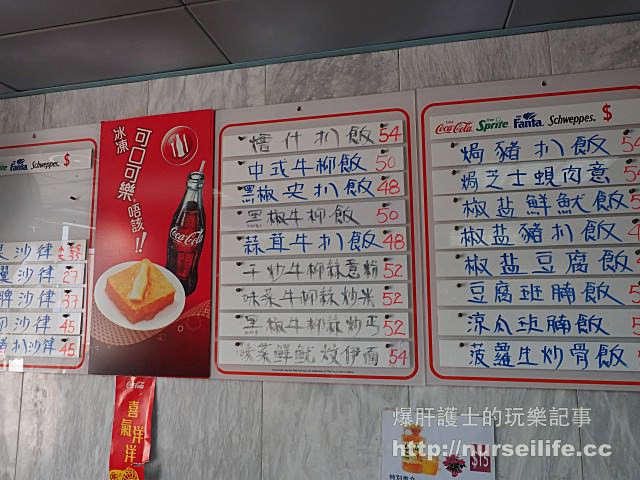 Schweppes. $
沙律
沙律 27
沙律 37
沙律 45
扒沙律 45
冰凍
可口可樂
唔該!!
Coca-Cola
什扒飯 54
中式牛柳飯 50
黑椒尖扒飯 48
黑椒牛柳飯 50
蒜茸牛扒飯 48
干炒牛柳絲意粉 52
味菜牛柳絲炒米 52
黑椒牛柳絲炒丐 52
味菜鮮魷炆伊面 54
Coca-Cola Sprite Fanta Schweppes. $
焗豬扒飯 54
焗芝士蜆肉意
椒盐鮮魷飯
椒盐豬扒飯
椒盐豆腐飯
豆腐班腩飯
涼瓜班腩飯
菠蘿生炒骨飯
Coca-Cola
喜氣洋洋
爆肝護士的玩樂記事
http://nurseilife.cc
$15
特別推介